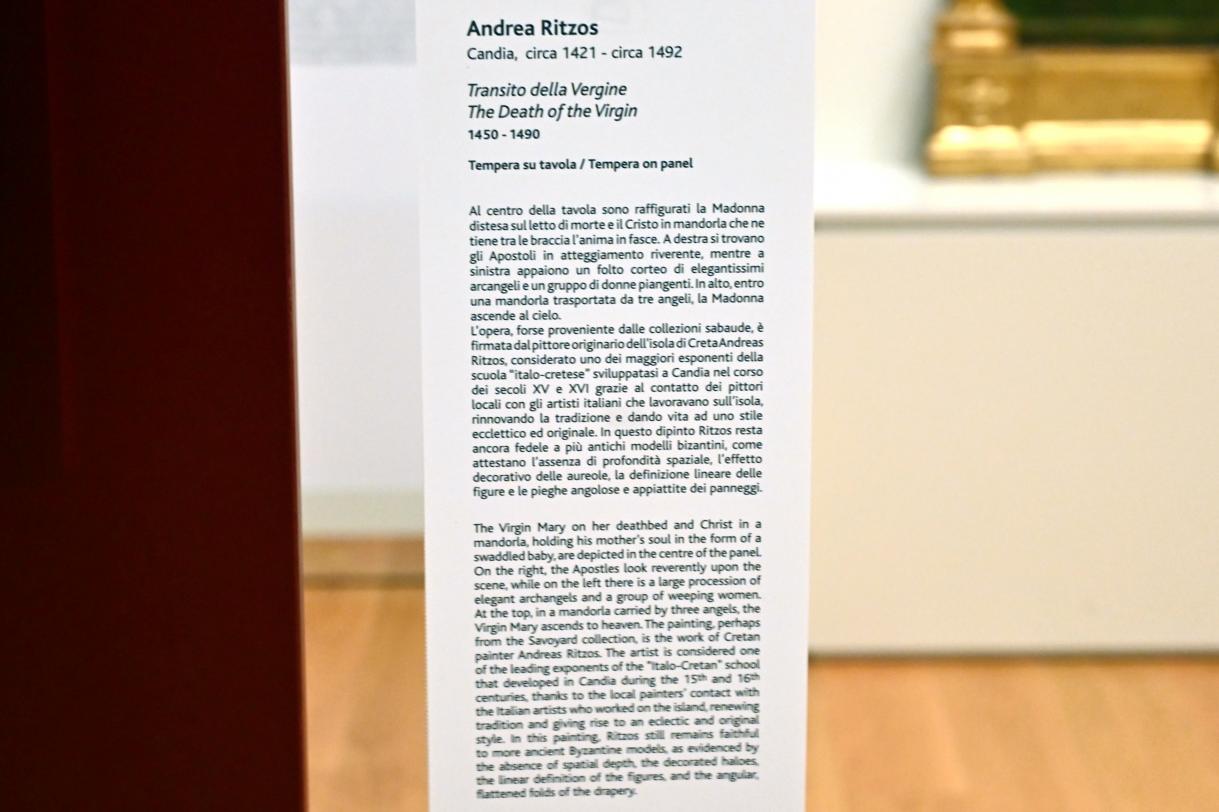 Andrea Ritzos
Candia, circa 1421 - circa 1492
Transito della Vergine
The Death of the Virgin
1450 - 1490
Tempera su tavola / Tempera on panel
Al centro della tavola sono raffigurati la Madonna
distesa sul letto di morte e il Cristo in mandorla che ne
tiene tra le braccia l'anima in fasce. A destra si trovano
gli Apostoli in atteggiamento riverente, mentre a
sinistra appaiono un folto corteo di elegantissimi
arcangeli e un gruppo di donne piangenti. In alto, entro
una mandorla trasportata da tre angeli, la Madonna
ascende al cielo.
L'opera, forse proveniente dalle collezioni sabaude, è
firmata dal pittore originario dell'isola di Creta Andreas
Ritzos, considerato uno dei maggiori esponenti della
scuola "italo-cretese" sviluppatasi a Candia nel corso
dei secoli XV e XVI grazie al contatto dei pittori
locali con gli artisti italiani che lavoravano sull'isola,
rinnovando la tradizione e dando vita ad uno stile
ecclettico ed originale. In questo dipinto Ritzos resta
ancora fedele a più antichi modelli bizantini, come
attestano l'assenza di profondità spaziale, l'effetto
decorativo delle aureole, la definizione lineare delle
figure e le pieghe angolose e appiattite dei panneggi.
The Virgin Mary on her deathbed and Christ in a
mandorla, holding his mother's soul in the form of a
swaddled baby, are depicted in the centre of the panel.
On the right, the Apostles look reverently upon the
scene, while on the left there is a large procession of
elegant archangels and a group of weeping women.
At the top, in a mandorla carried by three angels, the
Virgin Mary ascends to heaven. The painting, perhaps
from the Savoyard collection, is the work of Cretan
painter Andreas Ritzos. The artist is considered one
of the leading exponents of the "Italo-Cretan" school
that developed in Candia during the 15th and 16th
centuries, thanks to the local painters' contact with
the Italian artists who worked on the island, renewing
tradition and giving rise to an eclectic and original
style. In this painting, Ritzos still remains faithful
to more ancient Byzantine models, as evidenced by
the absence of spatial depth, the decorated haloes,
the linear definition of the figures, and the angular,
flattened folds of the drapery.